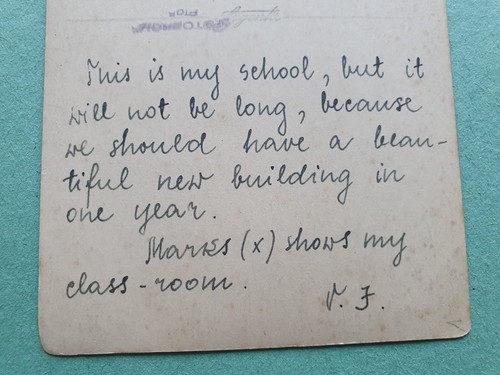 This is my school, but it
will not be long, because
we should have a beau-
tiful new building in
one year.
Marks (x) shows my
class-room.
V. F.